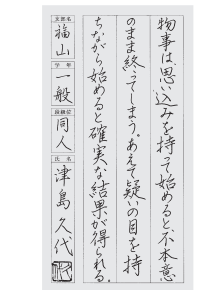 物事は思い込みを持って始めると不本意
のまま終ってしまう。あえて疑いの目を持
ちながら始めると確実な結果が得られる。
支部名
福山
学年
一般
段級位
同人
氏名
津島久代